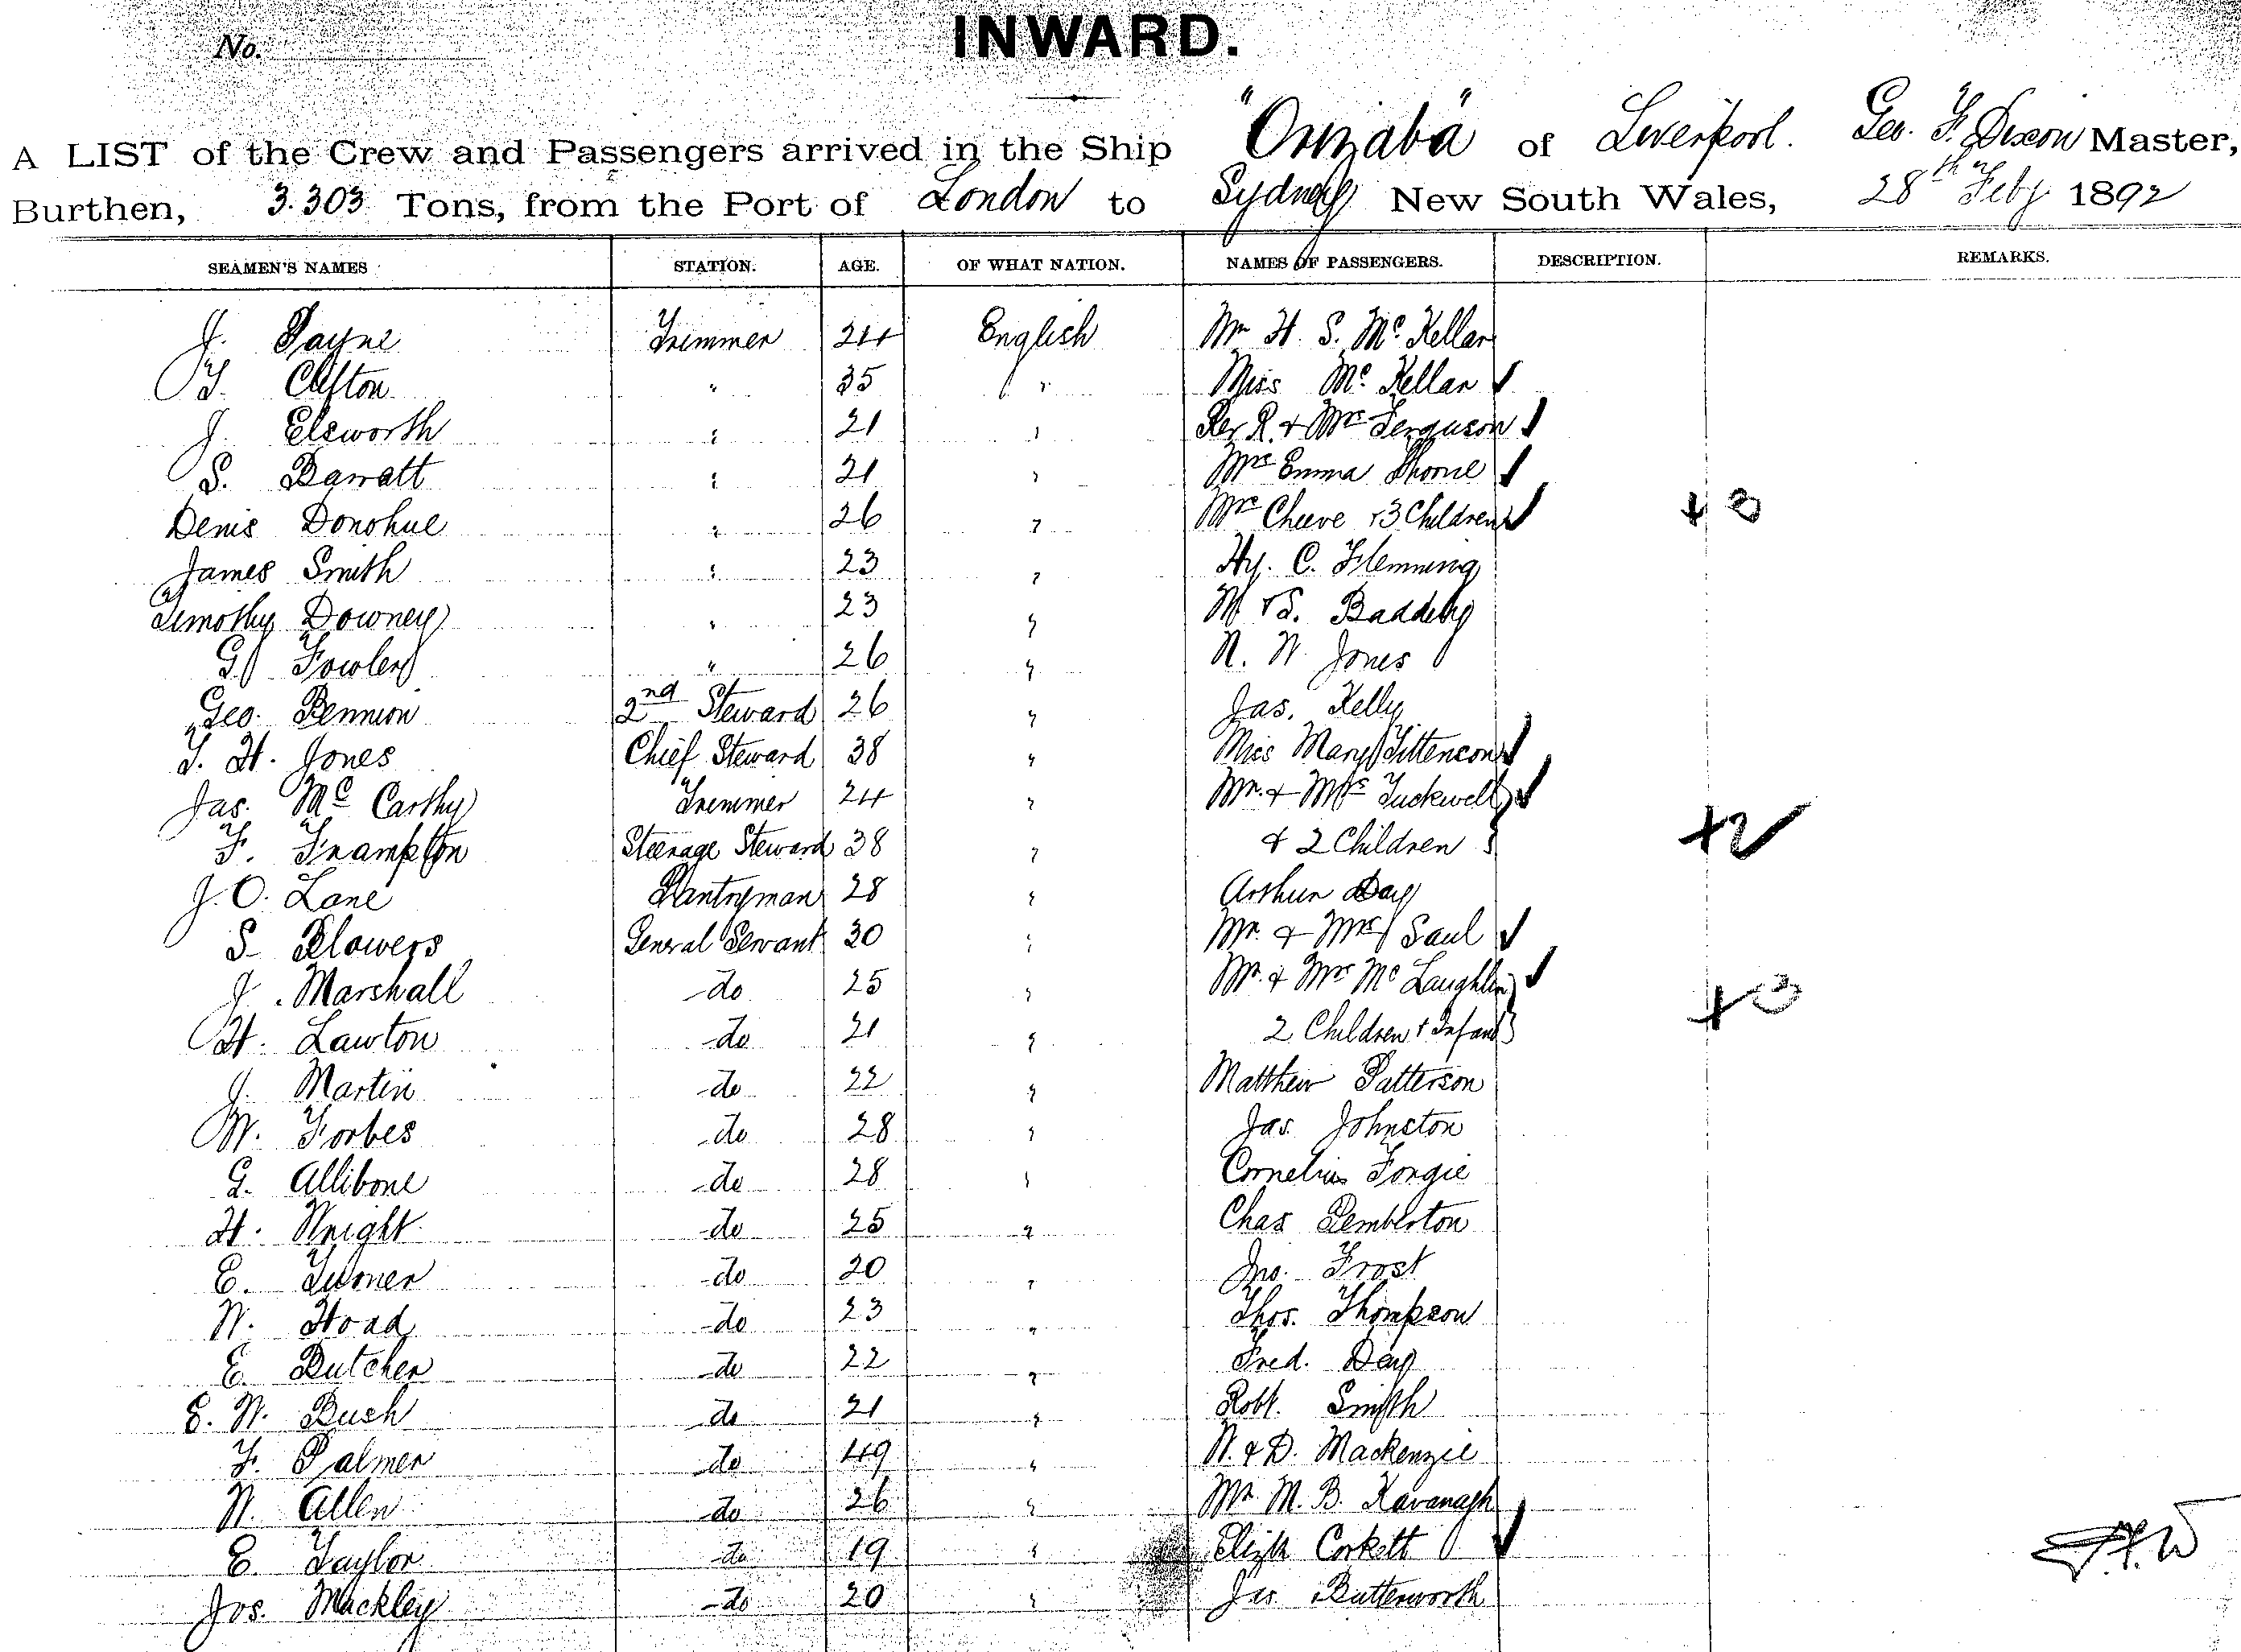 No.
INWARD.
A LIST of the Crew and Passengers arrived in the Ship "Orizaba" of Liverpool. Geo. F. Dixon Master,
Burthen, 3.303 Tons, from the Port of London to Sydney New South Wales, 28th Feby 1892
SEAMEN'S NAMES STATION. AGE. OF WHAT NATION. NAMES OF PASSENGERS. DESCRIPTION. REMARKS.
J. Payne Trimmer 24 English Mr H. S. McKellar
T. Clifton " 35 " Miss McKellar ✓
J. Elsworth " 21 " R. & Mrs Ferguson ✓
S. Barratt " 21 " Mrs Emma Thorne ✓
Denis Donohue " 26 " Mrs Cheeve & 3 Children ✓ + 3
James Smith " 23 " Hy. C. Flemming
Timothy Downey " 23 " & S. Baddely
G. Fowler " 26 " N. W. Jones
Geo. Bennion 2nd Steward 26 " Jas. Kelly
T. H. Jones Chief Steward 38 " Miss Mary Tittenson ✓
Jas. McCarthy Trimmer 24 " Mr. & Mrs Tuckwell ✓
F. Frampton Steerage Steward 38 " & 2 Children +2 ✓
J. O. Lane Pantryman 28 " Arthur Day
S. Flowers General Servant 30 " Mr. & Mrs Saul ✓
J. Marshall do 25 " Mr. & Mrs McLaughlin ✓
H. Lawton do 21 " 2 Children & Infant +3
J. Martin do 22 " Matthew Patterson
W. Forbes do 28 " Jas. Johnston
G. Allibone do 28 " Cornelius Forgie
H. Wright do 25 " Chas Pemberton
E. Turner do 20 " Jno. Frost
W. Hoad do 23 " Thos. Thompson
E. Butcher do 22 " Fred. Day
E. W. Bush do 21 " Robt. Smith
F. Palmer do 49 " W. & D. Mackenzie
W. Allen do 26 " Mr M. B. Kavanagh
E. Taylor do 19 " Elizth Corkett ✓
Jos. Mackley do 20 " Jas Butterworth